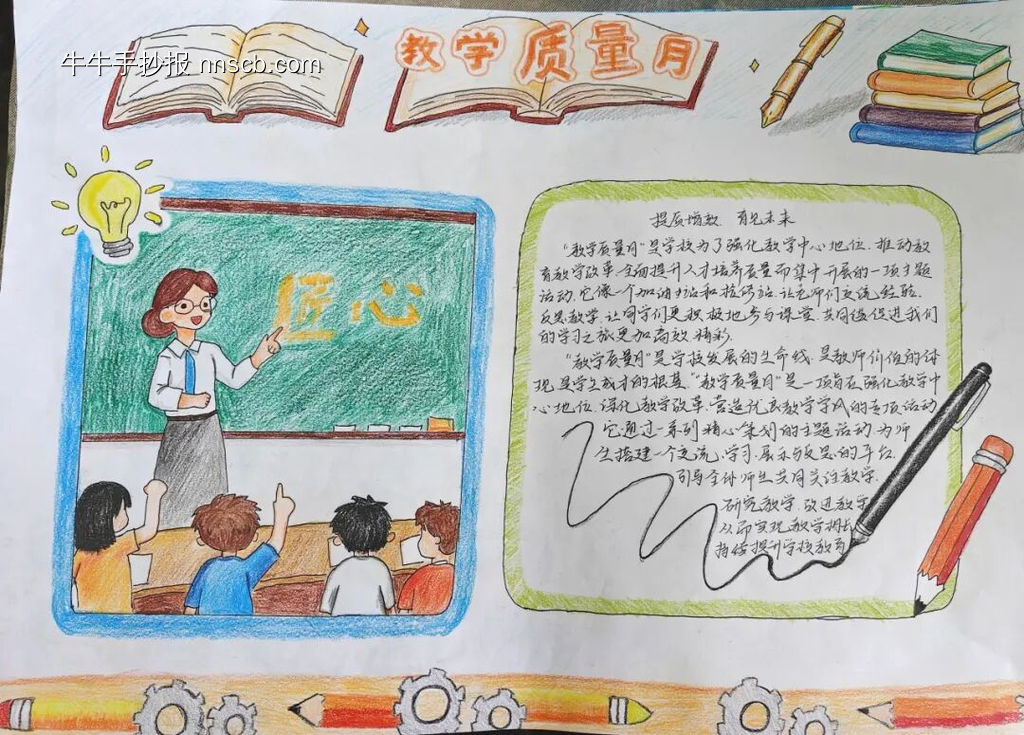 牛牛手抄报 nnscb.com
教学质量月
匠心
提质增效 育见未来
“教学质量月”是学校为了强化教学中心地位、推动教
育教学改革、全面提升人才培养质量而集中开展的一项主题
活动。它像一个加油站和检修站，让老师们交流经验、
反思教学，让同学们更积极地参与课堂，共同促进我们
的学习之旅更加高效、精彩。
“教学质量月”是学校发展的生命线，是教师价值的体
现，是学生成才的根基。“教学质量月”是一项旨在强化教学中
心地位、深化教学改革、营造优良教学学风的专项活动
它通过一系列精心策划的主题活动，为师
生搭建一个交流、学习、展示与反思的平台
引导全体师生共同关注教学、
研究教学、改进教学
从而实现教学相长
持续提升学校教育